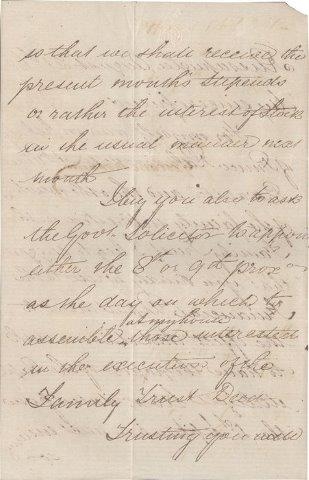 so that we shall receive the
present month's stipends
or rather the interest of stock
in the usual manner next
month
I beg you also to ask
the Govt Solicitor to appoint
either the 8th or 9th prox
as the day on which to
assemble at my house those interested
in the execution of the
Family Trust Deed
Trusting you will